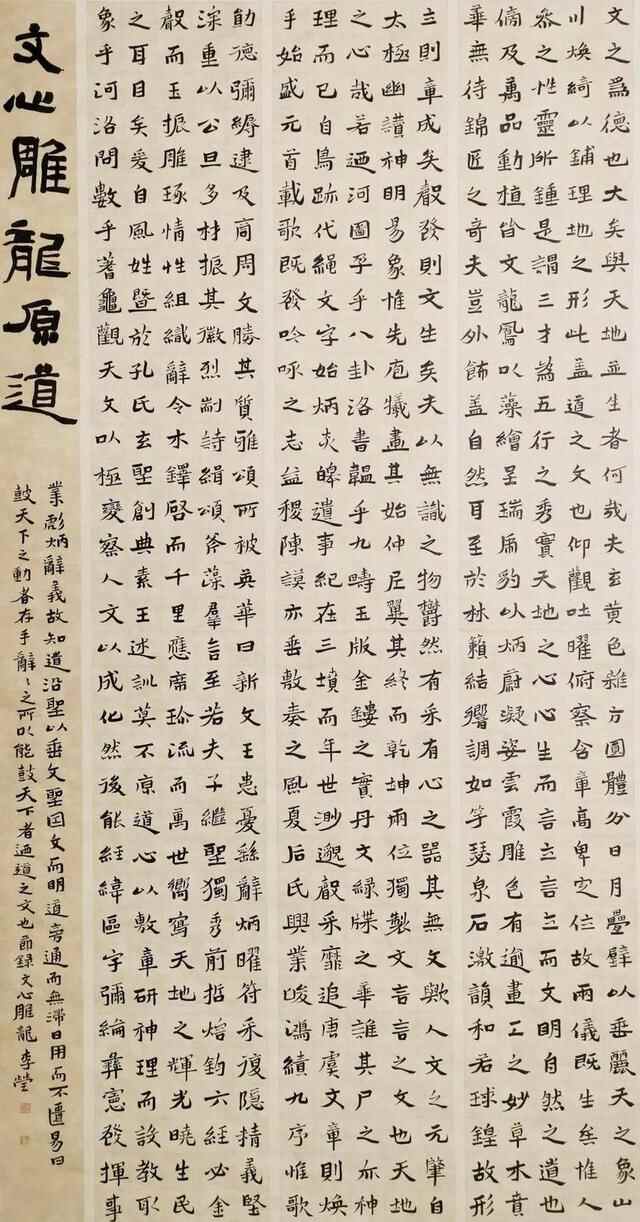 文之爲德也大矣與天地並生者何哉夫玄黃色雜方圓體分日月疊璧以垂麗之象山
川煥綺以鋪理地之形此蓋道之文也仰觀吐曜俯察含章高卑定位故兩儀既生矣惟人
參之性靈所鍾是謂三才為五行之秀實天地之心心生而言立言立而文明自然之道也
傍及萬品動植皆文龍鳳以藻繪呈瑞虎豹以炳蔚凝姿雲霞雕色有逾畫工之妙草木賁
華無待錦匠之奇夫豈外飾蓋自然耳至於林籟結響調如竽瑟泉石激韻和若球鍠故形
立則章成矣聲發則文生矣夫以無識之物鬱然有采有心之器其無文歟人文之元肇自
太極幽讚神明易象惟先庖犧畫其始仲尼翼其終而乾坤兩位獨製文言言之文也天地
之心哉若迺河圖孕乎八卦洛書韞乎九疇玉版金鏤之實丹文綠牒之華誰其尸之亦神
理而已自鳥跡代繩文字始炳炎皞遺事紀在三墳而年世渺邈聲采靡追唐虞文章則煥
乎始盛元首載歌既發吟咏之志益稷陳謨亦垂敷奏之風夏后氏興業峻鴻績九序惟歌
勛德彌縟逮及商周文勝其質雅頌所被英華日新文王患憂繇辭炳曜符采復隱精義堅
深重以公旦多材振其徽烈剬詩緝頌斧藻羣言至若夫子繼聖獨秀前哲熔鈞六經必金
聲而玉振雕琢情性組織辭令木鐸啓而千里應席珍流而萬世響寫天地之輝光曉生民
之耳目矣爰自風姓暨於孔氏玄聖創典素王述訓莫不原道心以敷章研神理而設教取
象乎河洛問數乎蓍龜觀天文以極變察人文以成化然後能經緯區宇彌綸彝憲發揮事
文心雕龍原道
業彪炳辭義故知道沿聖以垂文聖因文而明道旁通而無滯日用而不匱易曰
鼓天下之動者存乎辭〻之所以能鼓天下者迺道之文也節錄文心雕龍 李瑩